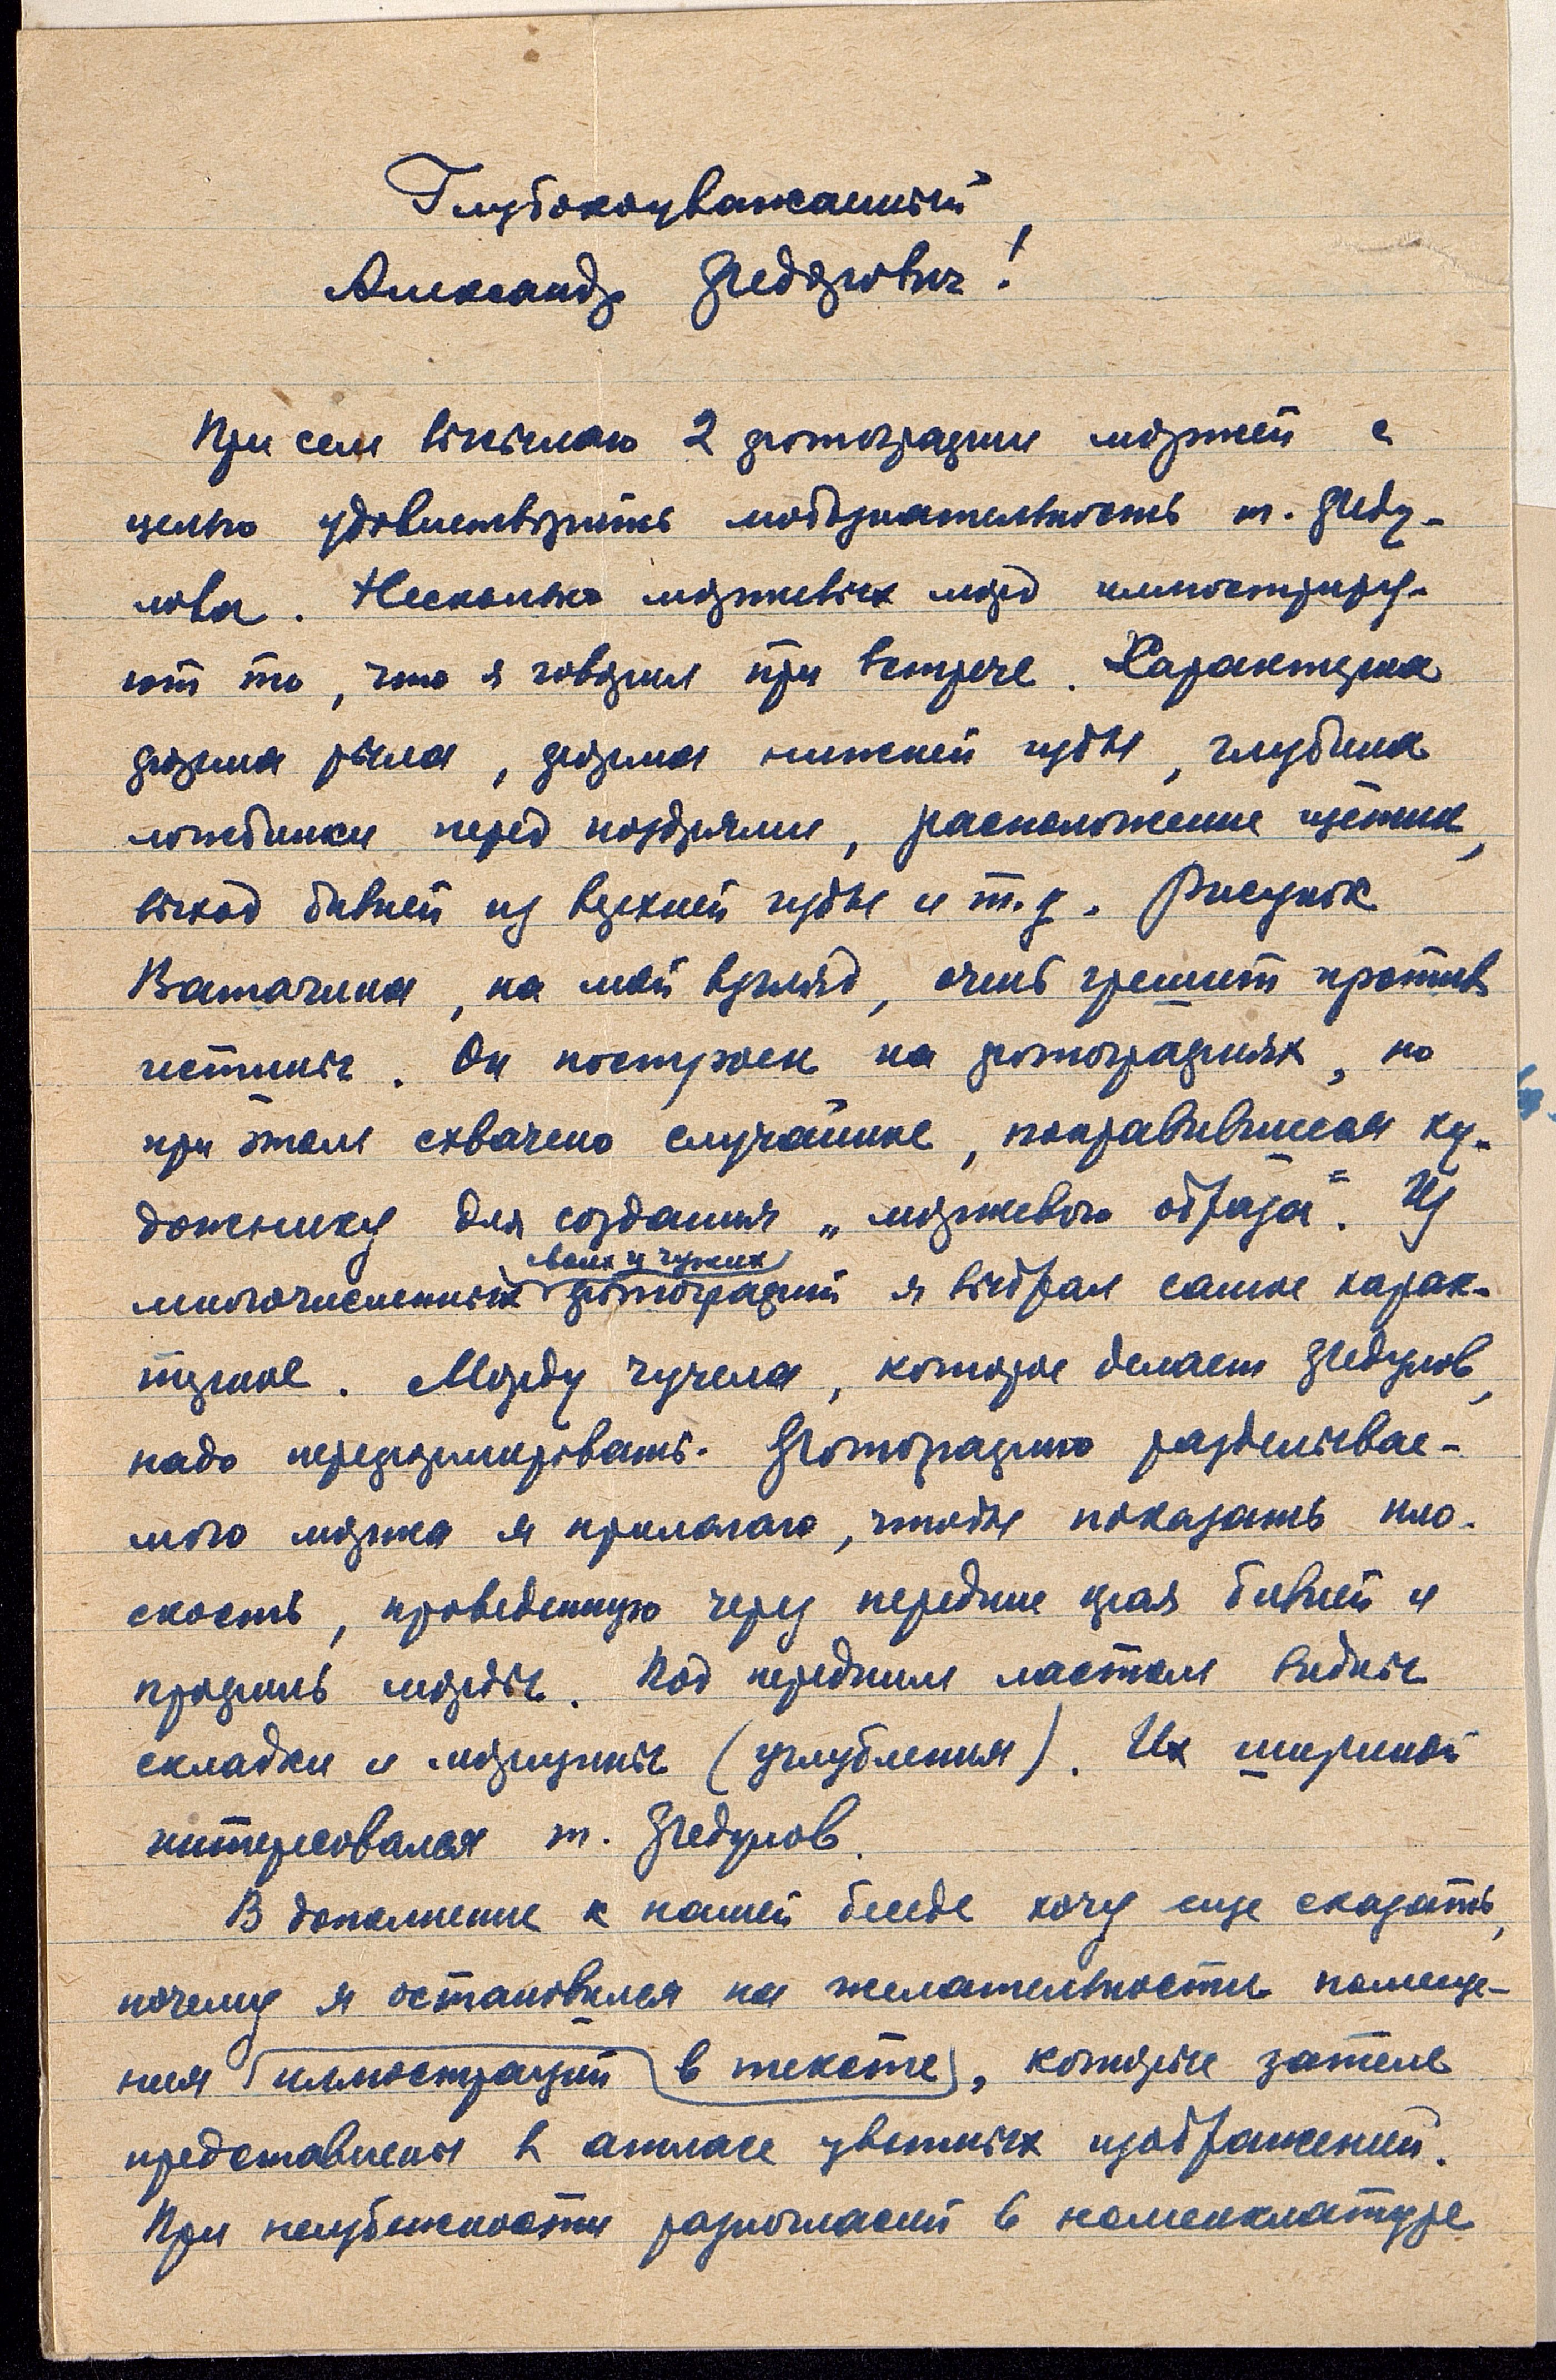 Глубокоуважаемый,
Александр Федорович!
При сем высылаю 2 фотографии моржей с
целью удовлетворить любознательность т. Феду-
лова. Несколько моржевых морд иллюстриру-
ют то, что я говорил при встрече. Характерна
форма рыла, форма нижней губы, глубина
ложбинки перед ноздрями, расположение щетины,
выход бивней из верхней губы и т.д. Рисунок
Ватагина, на мой взгляд, очень грешит против
истины. Он построен на фотографиях, но
при этом схвачено случайное, понравившееся ху-
дожнику для создания „моржевого образа“. Из
своих и чужих
многочисленных фотографий я выбрал самое харак-
терное. Морду чучела, которое делает Федулов,
надо переформировать. Фотографию разделывае-
мого моржа я прилагаю, чтобы показать пло-
скость, проведенную через передние края бивней и
профиль морды. Под передним ластом видны
складки и морщины (углубления). Их шириной
интересовался т. Федулов.
В дополнение к нашей беседе хочу еще сказать,
почему я остановился на желательности помеще-
ния иллюстраций в тексте, которые затем
представлены в атласе цветных изображений.
При неизбежности разногласий в номенклатуре